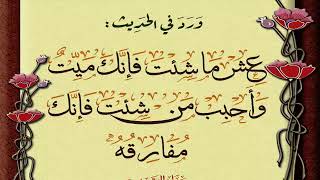 وَرَدَ في الحَدِيث :
عِش مَا شِئتَ فَإنَّكَ مَيِّتٌ
وَأحبِب مَن شِئتَ فَإنَّكَ
مُفَارِقُهُ